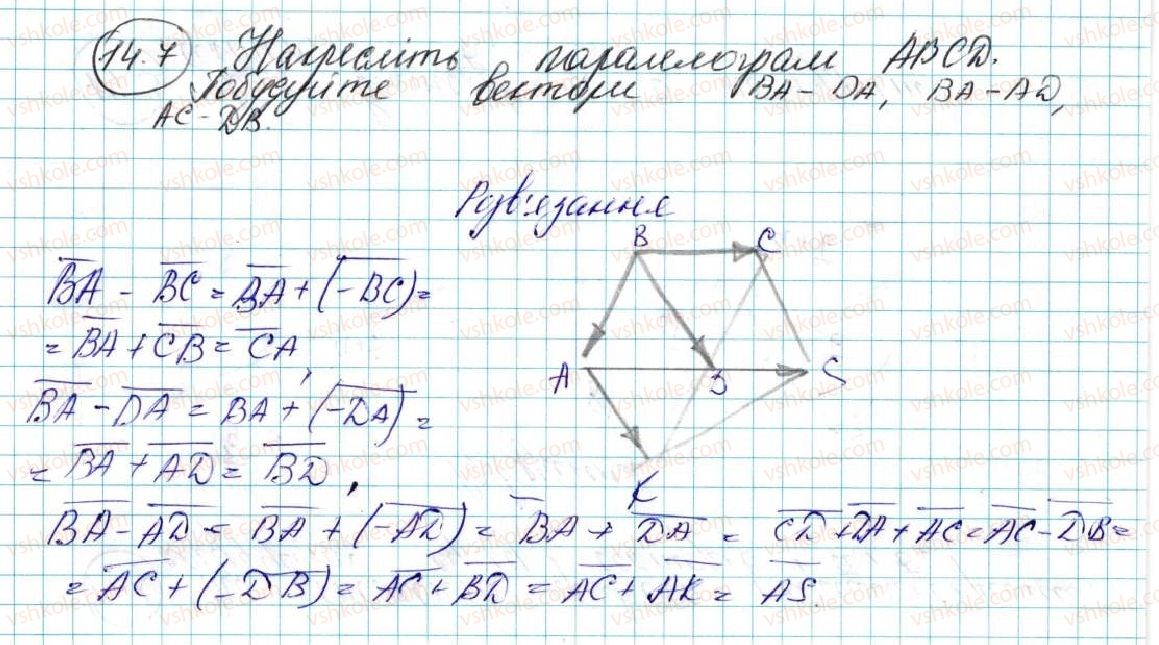 14.7 Накресліть паралелограм ABCD.
Побудуйте вектори BA - DA, BA - AD,
AC - DB.
Розв'язання
BA - BC = BA + (-BC) =
= BA + CB = CA,
BA - DA = BA + (-DA) =
= BA + AD = BD,
BA - AD = BA + (-AD) = BA + DA = CD + DA + AC = AC - DB =
= AC + (-DB) = AC + BD = AC + AK = AS
B C
A S
K
vshkole.com